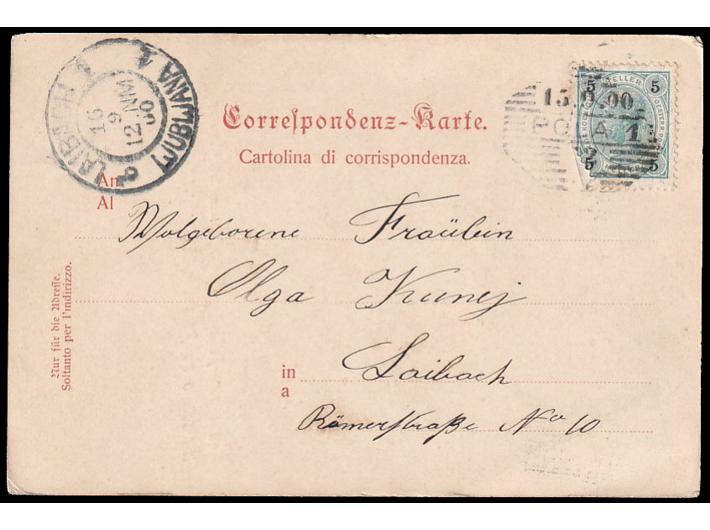 LAIBACH 1
LJUBLJANA 1
16
9
12 NM
00
5 HELLER 5
15.9.00
POLA 1
5 5
Correspondenz-Karte.
Cartolina di corrispondenza.
An
Al
Wolgeborene Fräulein
Olga Kunej
in Laibach
a
Römerstraße No 10
Nur für die Adresse.
Soltanto per l'indirizzo.